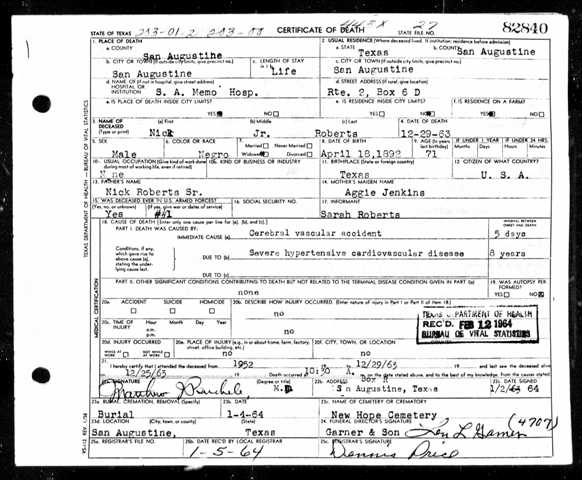 82840
STATE OF TEXAS CERTIFICATE OF DEATH STATE FILE NO. 27
1. PLACE OF DEATH 2. USUAL RESIDENCE (Where deceased lived. If institution, residence before admission)
a. COUNTY San Augustine a. STATE Texas b. COUNTY San Augustine
b. CITY OR TOWN (If outside city limits, give precinct no.) c. LENGTH OF STAY c. CITY OR TOWN (If outside city limits, give precinct no.)
San Augustine Life San Augustine
d. NAME OF (If not in hospital, give street address) HOSPITAL OR INSTITUTION d. STREET ADDRESS (If rural, give location)
S. A. Memo' Hosp. Rte. 2, Box 6 D
e. IS PLACE OF DEATH INSIDE CITY LIMITS? e. IS RESIDENCE INSIDE CITY LIMITS? f. IS RESIDENCE ON A FARM?
YES NO YES NO YES NO
3. NAME OF DECEASED (Type or print) (a) First (b) Middle (c) Last 4. DATE OF DEATH
Nick Jr. Roberts 12-29-63
5. SEX 6. COLOR OR RACE 7. Married Never Married 8. DATE OF BIRTH 9. AGE IF UNDER 1 YEAR IF UNDER 24 HRS.
Male Negro Widowed Divorced April 18,1892 71 Months Days Hours Min.
10a. USUAL OCCUPATION (Give kind of work done during most of working life, even if retired) 10b. KIND OF BUSINESS OR INDUSTRY 11. BIRTHPLACE (State or foreign country) 12. CITIZEN OF WHAT COUNTRY?
Texas U. S. A.
13. FATHER'S NAME 14. MOTHER'S MAIDEN NAME
Nick Roberts Sr. Aggie Jenkins
15. WAS DECEASED EVER IN U.S. ARMED FORCES? 16. SOCIAL SECURITY NO. 17. INFORMANT
(Yes, no, or unknown) (If yes, give war or dates of service)
Yes ##1 Sarah Roberts
18. CAUSE OF DEATH [Enter only one cause per line for (a), (b), and (c).] INTERVAL BETWEEN ONSET AND DEATH
PART I. DEATH WAS CAUSED BY:
IMMEDIATE CAUSE (a) Cerebral vascular accident 5 days
Conditions, if any, which gave rise to above cause (a), stating the underlying cause last.
DUE TO (b) Severe hypertensive cardiovascular disease 8 years
DUE TO (c)
PART II. OTHER SIGNIFICANT CONDITIONS CONTRIBUTING TO DEATH BUT NOT RELATED TO THE TERMINAL DISEASE CONDITION GIVEN IN PART I(a) 19. WAS AUTOPSY PERFORMED?
none YES NO
20a. ACCIDENT SUICIDE HOMICIDE 20b. DESCRIBE HOW INJURY OCCURRED. (Enter nature of injury in Part I or Part II of item 18.)
no
20c. TIME OF INJURY Hour Month Day Year
a.m.
p.m. no
TEXAS DEPARTMENT OF HEALTH
REC'D. FEB 12 1964
BUREAU OF VITAL STATISTICS
20d. INJURY OCCURRED 20e. PLACE OF INJURY (e.g., in or about home, farm, factory, street, office building, etc.) 20f. CITY, TOWN, OR LOCATION
WHILE AT WORK NOT WHILE AT WORK no no
21. I hereby certify that I attended the deceased from 1952 12/29/63
12/25/63 Death occurred at on the date stated above, and to the best of my knowledge, from the causes stated.
22a. SIGNATURE (Degree or title) 22b. ADDRESS 22c. DATE SIGNED
M.D.
23a. BURIAL, CREMATION, REMOVAL (Specify) 23b. DATE 23c. NAME OF CEMETERY OR CREMATORY
Burial 1-4-64 New Hope Cemetery
23d. LOCATION (City, town, or county) (State) 24. FUNERAL DIRECTOR'S SIGNATURE
San Augustine, Texas Garner & Son (4707)
25a. REGISTRAR'S FILE NO. 25b. DATE REC'D BY LOCAL REGISTRAR 25c. REGISTRAR'S SIGNATURE
1-5-64 Dennis Price
TEXAS DEPARTMENT OF HEALTH — BUREAU OF VITAL STATISTICS
MEDICAL CERTIFICATION